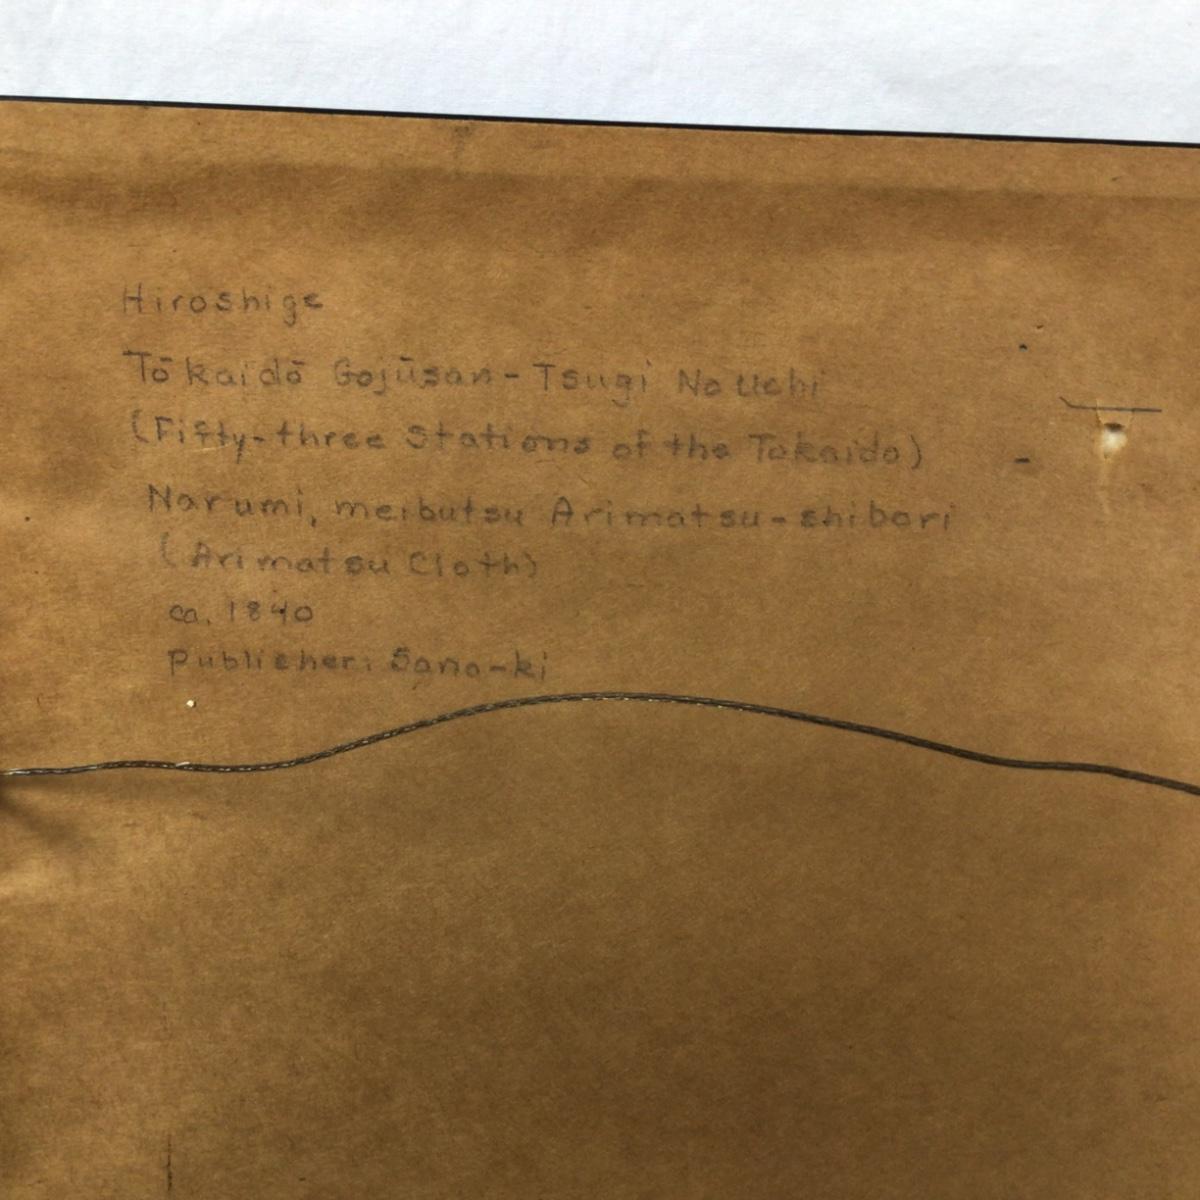 Hiroshige
Tōkaidō Gojūsan-Tsugi No Uchi
(Fifty-three Stations of the Tokaido)
Narumi, meibutsu Arimatsu-shibori
(Arimatsu Cloth)
ca. 1840
Publisher: Sano-ki